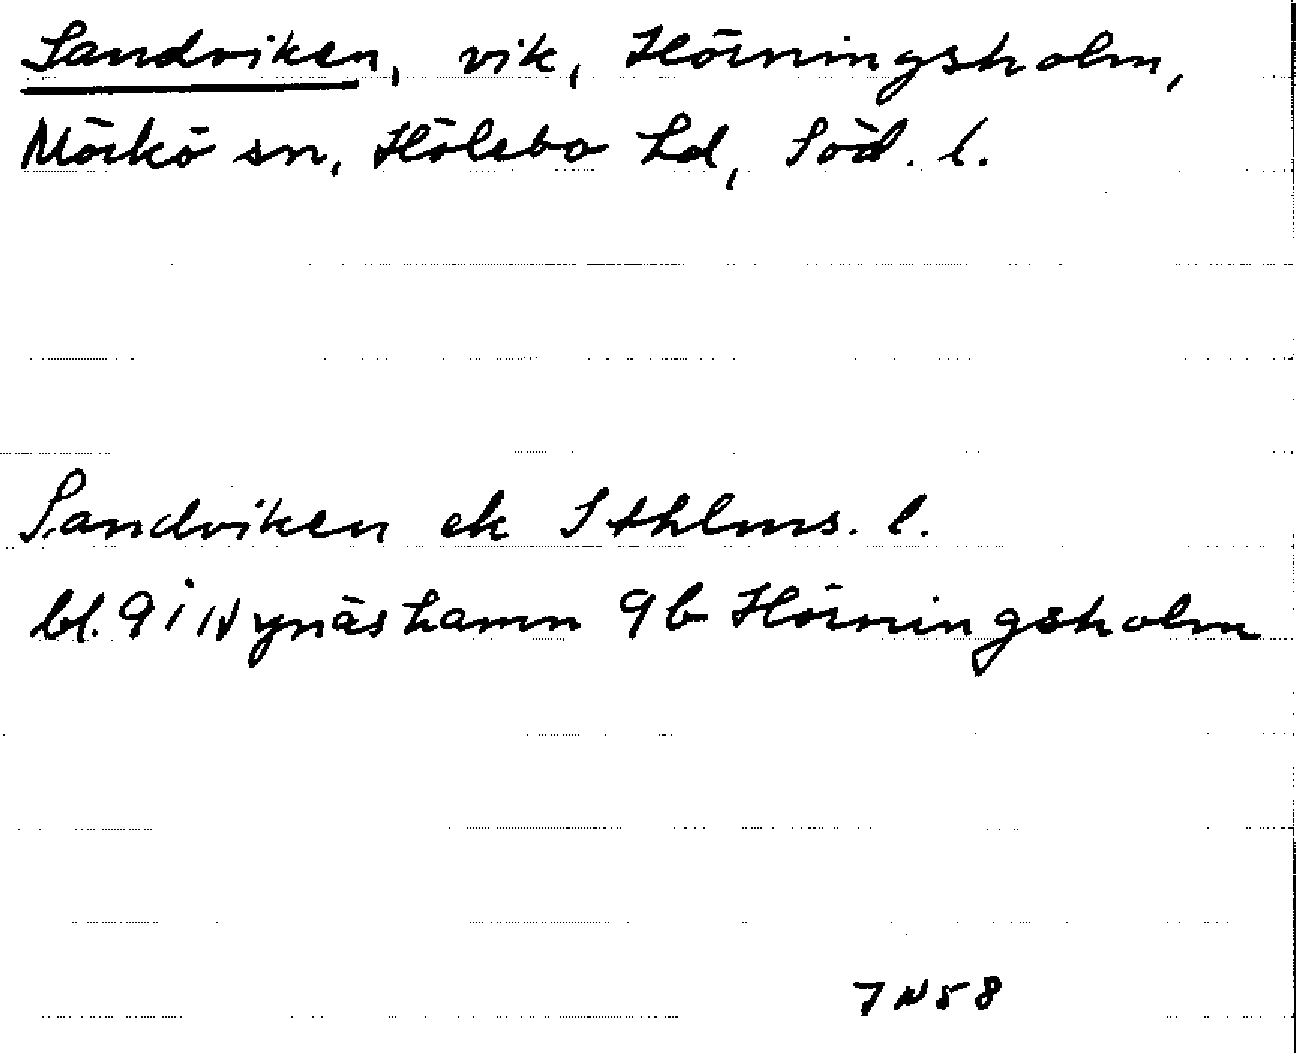 Sandviken, vik, Hörningsholm,
Mörkö sn, Hölebo hd, Söd. l.
Sandviken ek Sthlms. l.
bl. 9 i Nynäshamn 9b Hörningsholm
7 N 58